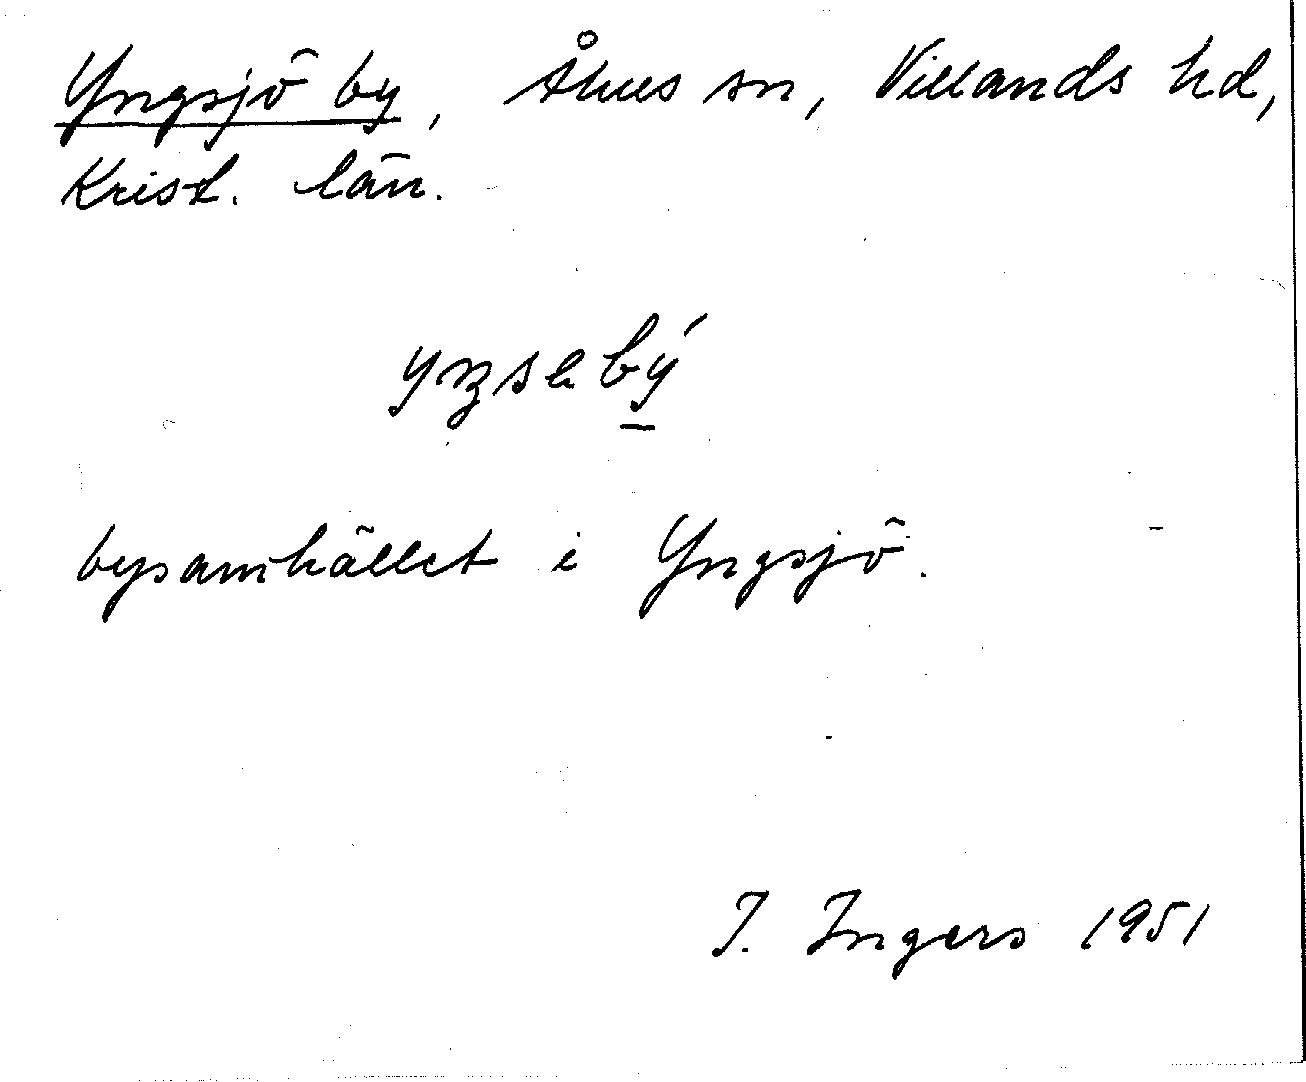 Yngsjö by, Åhus sn, Villands hd,
Krist. län.
yŋsebý
bysamhället i Yngsjö.
I. Ingers 1951